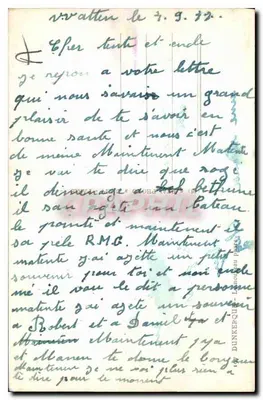 Watten le 7.9.72.
Cher tente et oncle
je repon a votre lettre
qui nous savais un grand
plaisir de te savoir en
bonne sante et nous s'est
de meime Maintenent Ma
je vai te dire que
il demenage a bethune
il son un bateau
le pointé et maintenent il
sa pele RMC. Maintenent
matente j'ai azette un petit
souvenir pour toi et non oncle
mé il vou le dit a personne
matente j'ai azete un souvenir
a Robert et a Daniel et
Maintenent
et Maman te donne le bonjour
Maintenen je ne voi plus rien a
te dire pour le moment
DUNKERQUE